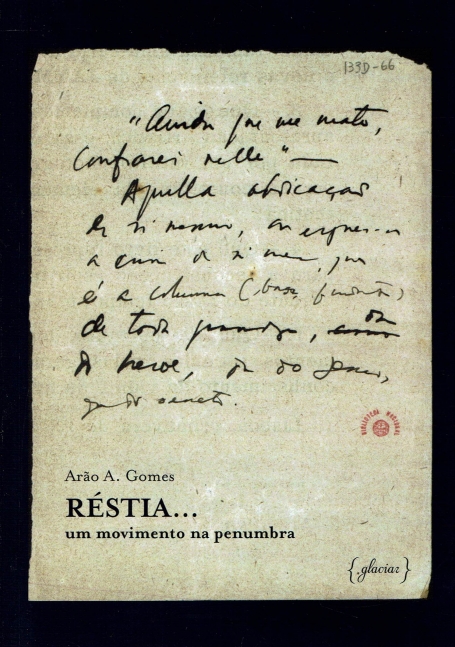 133D-66
"Ainda que me mate,
confiarei nelle" —
Aquella abdicação
de si mesmo,
a cima de si mesmo, que
é a columna (base,
de toda grandeza,
do heroe, ou do Genio,
ou do sancto.
BIBLIOTECA NACIONAL
Arão A. Gomes
RÉSTIA...
um movimento na penumbra
{.glaciar}